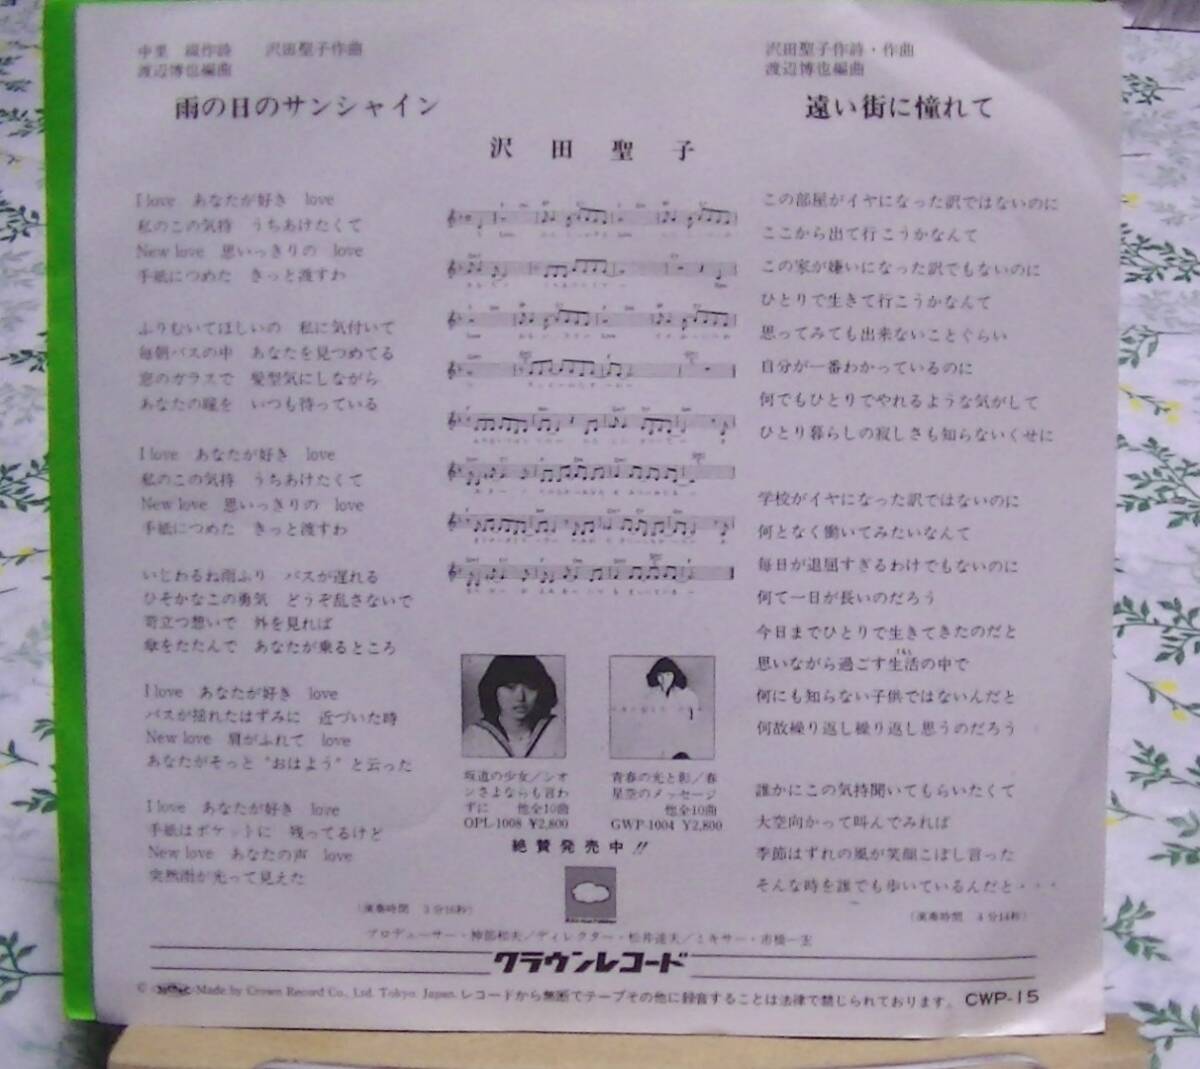 中里 綴作詩 沢田聖子作曲
渡辺博也編曲
雨の日のサンシャイン
沢田聖子作詩・作曲
渡辺博也編曲
遠い街に憧れて
沢田聖子
I love あなたが好き love
私のこの気持 うちあけたくて
New love 思いっきりの love
手紙につめた きっと渡すわ
ふりむいてほしいの 私に気付いて
毎朝バスの中 あなたを見つめてる
窓のガラスで 髪型気にしながら
あなたの瞳を いつも待っている
I love あなたが好き love
私のこの気持 うちあけたくて
New love 思いっきりの love
手紙につめた きっと渡すわ
いじわるね雨ふり バスが遅れる
ひそかなこの勇気 どうぞ乱さないで
苛立つ想いで 外を見れば
傘をたたんで あなたが乗るところ
I love あなたが好き love
バスが揺れたはずみに 近づいた時
New love 肩がふれて love
あなたがそっと“おはよう”と云った
I love あなたが好き love
手紙はポケットに 残ってるけど
New love あなたの声 love
突然雨が光って見えた
(演奏時間 3分16秒)
坂道の少女/シオ
ンさよならも言わ
ずに 他全10曲
OPL-1008 ¥2,800
青春の光と影/春
星空のメッセージ
他全10曲
GWP-1004 ¥2,800
絶賛発売中!!
この部屋がイヤになった訳ではないのに
ここから出て行こうかなんて
この家が嫌いになった訳でもないのに
ひとりで生きて行こうかなんて
思ってみても出来ないことぐらい
自分が一番わかっているのに
何でもひとりでやれるような気がして
ひとり暮らしの寂しさも知らないくせに
学校がイヤになった訳ではないのに
何となく働いてみたいなんて
毎日が退屈すぎるわけでもないのに
何て一日が長いのだろう
今日までひとりで生きてきたのだと
思いながら過ごす生活の中で
何にも知らない子供ではないんだと
何故繰り返し繰り返し思うのだろう
誰かにこの気持聞いてもらいたくて
大空向かって叫んでみれば
季節はずれの風が笑顔こぼし言った
そんな時を誰でも歩いているんだと・・・
(演奏時間 4分14秒)
プロデューサー・神部和夫/ディレクター・松井達夫/ミキサー・市橋一宏
クラウンレコード
© Made by Crown Record Co., Ltd. Tokyo, Japan. レコードから無断でテープその他に録音することは法律で禁じられております。 CWP-15